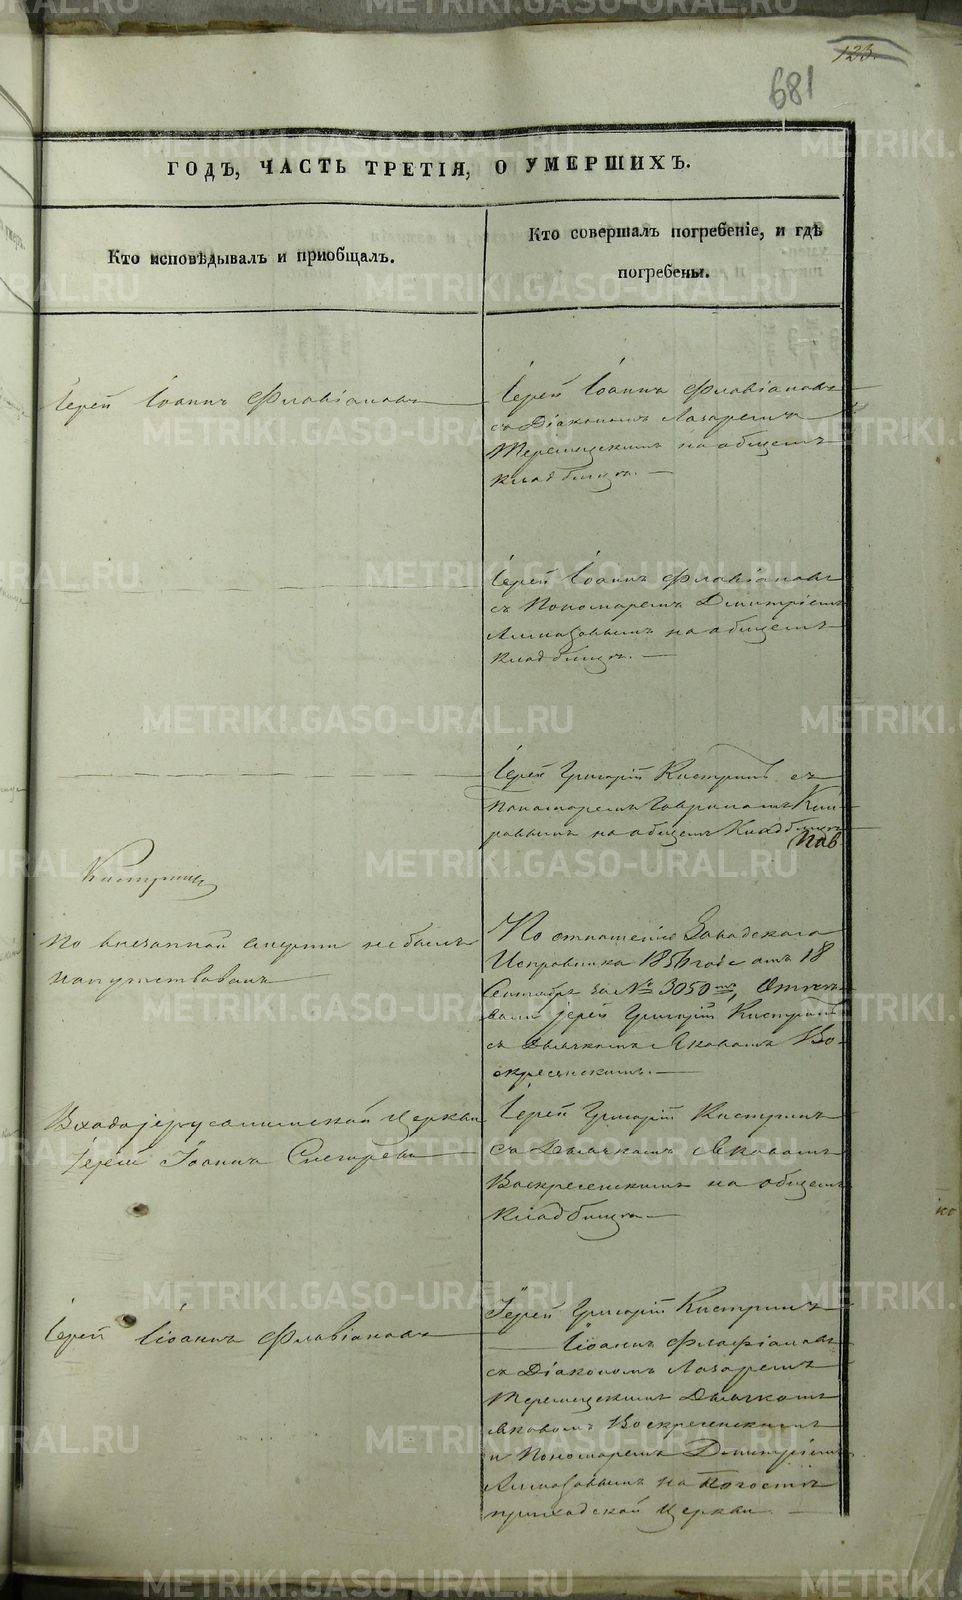 123.
681
ГОДЪ, ЧАСТЬ ТРЕТІЯ, О УМЕРШИХЪ.
Кто исповѣдывалъ и пріобщалъ.
Кто совершалъ погребеніе, и гдѣ
погребены.
Іерей Іоаннъ Флавіановъ
Іерей Іоаннъ Флавіановъ
съ Діакономъ Лазаремъ
на общемъ
кладбищѣ. —
Іерей Іоаннъ Флавіановъ
съ Пономаремъ Димитріемъ
Алмазовымъ на общемъ
кладбищѣ. —
Іерей Григорій Кистринъ съ
Пономаремъ Гавріиломъ
на общемъ Кладбищѣ
Кистринъ
По внезапной смерти не былъ
напутствованъ
По отношенію Заводскаго
Исправника 1856 года отъ 18
Сентября за № 3050мъ, Отпѣ-
вали іерей Григорій Кистринъ
съ Дьячкомъ Яковомъ Во-
скресенскимъ. —
Входоіерусалимской церкви
Іерей Іоаннъ Снегиревъ
Іерей Григорій Кистринъ
съ Дьячкомъ Яковомъ
Воскресенскимъ на общемъ
кладбищѣ —
Іерей Іоаннъ Флавіановъ
Іерей Григорій Кистринъ
— Іоаннъ Флафіановъ
съ Діакономъ Лазаремъ
Дьячкомъ
Яковомъ Воскресенскимъ
и Пономаремъ Димитріемъ
Алмазовымъ на Погостѣ
приходской церкви —
METRIKI.GASO-URAL.RU